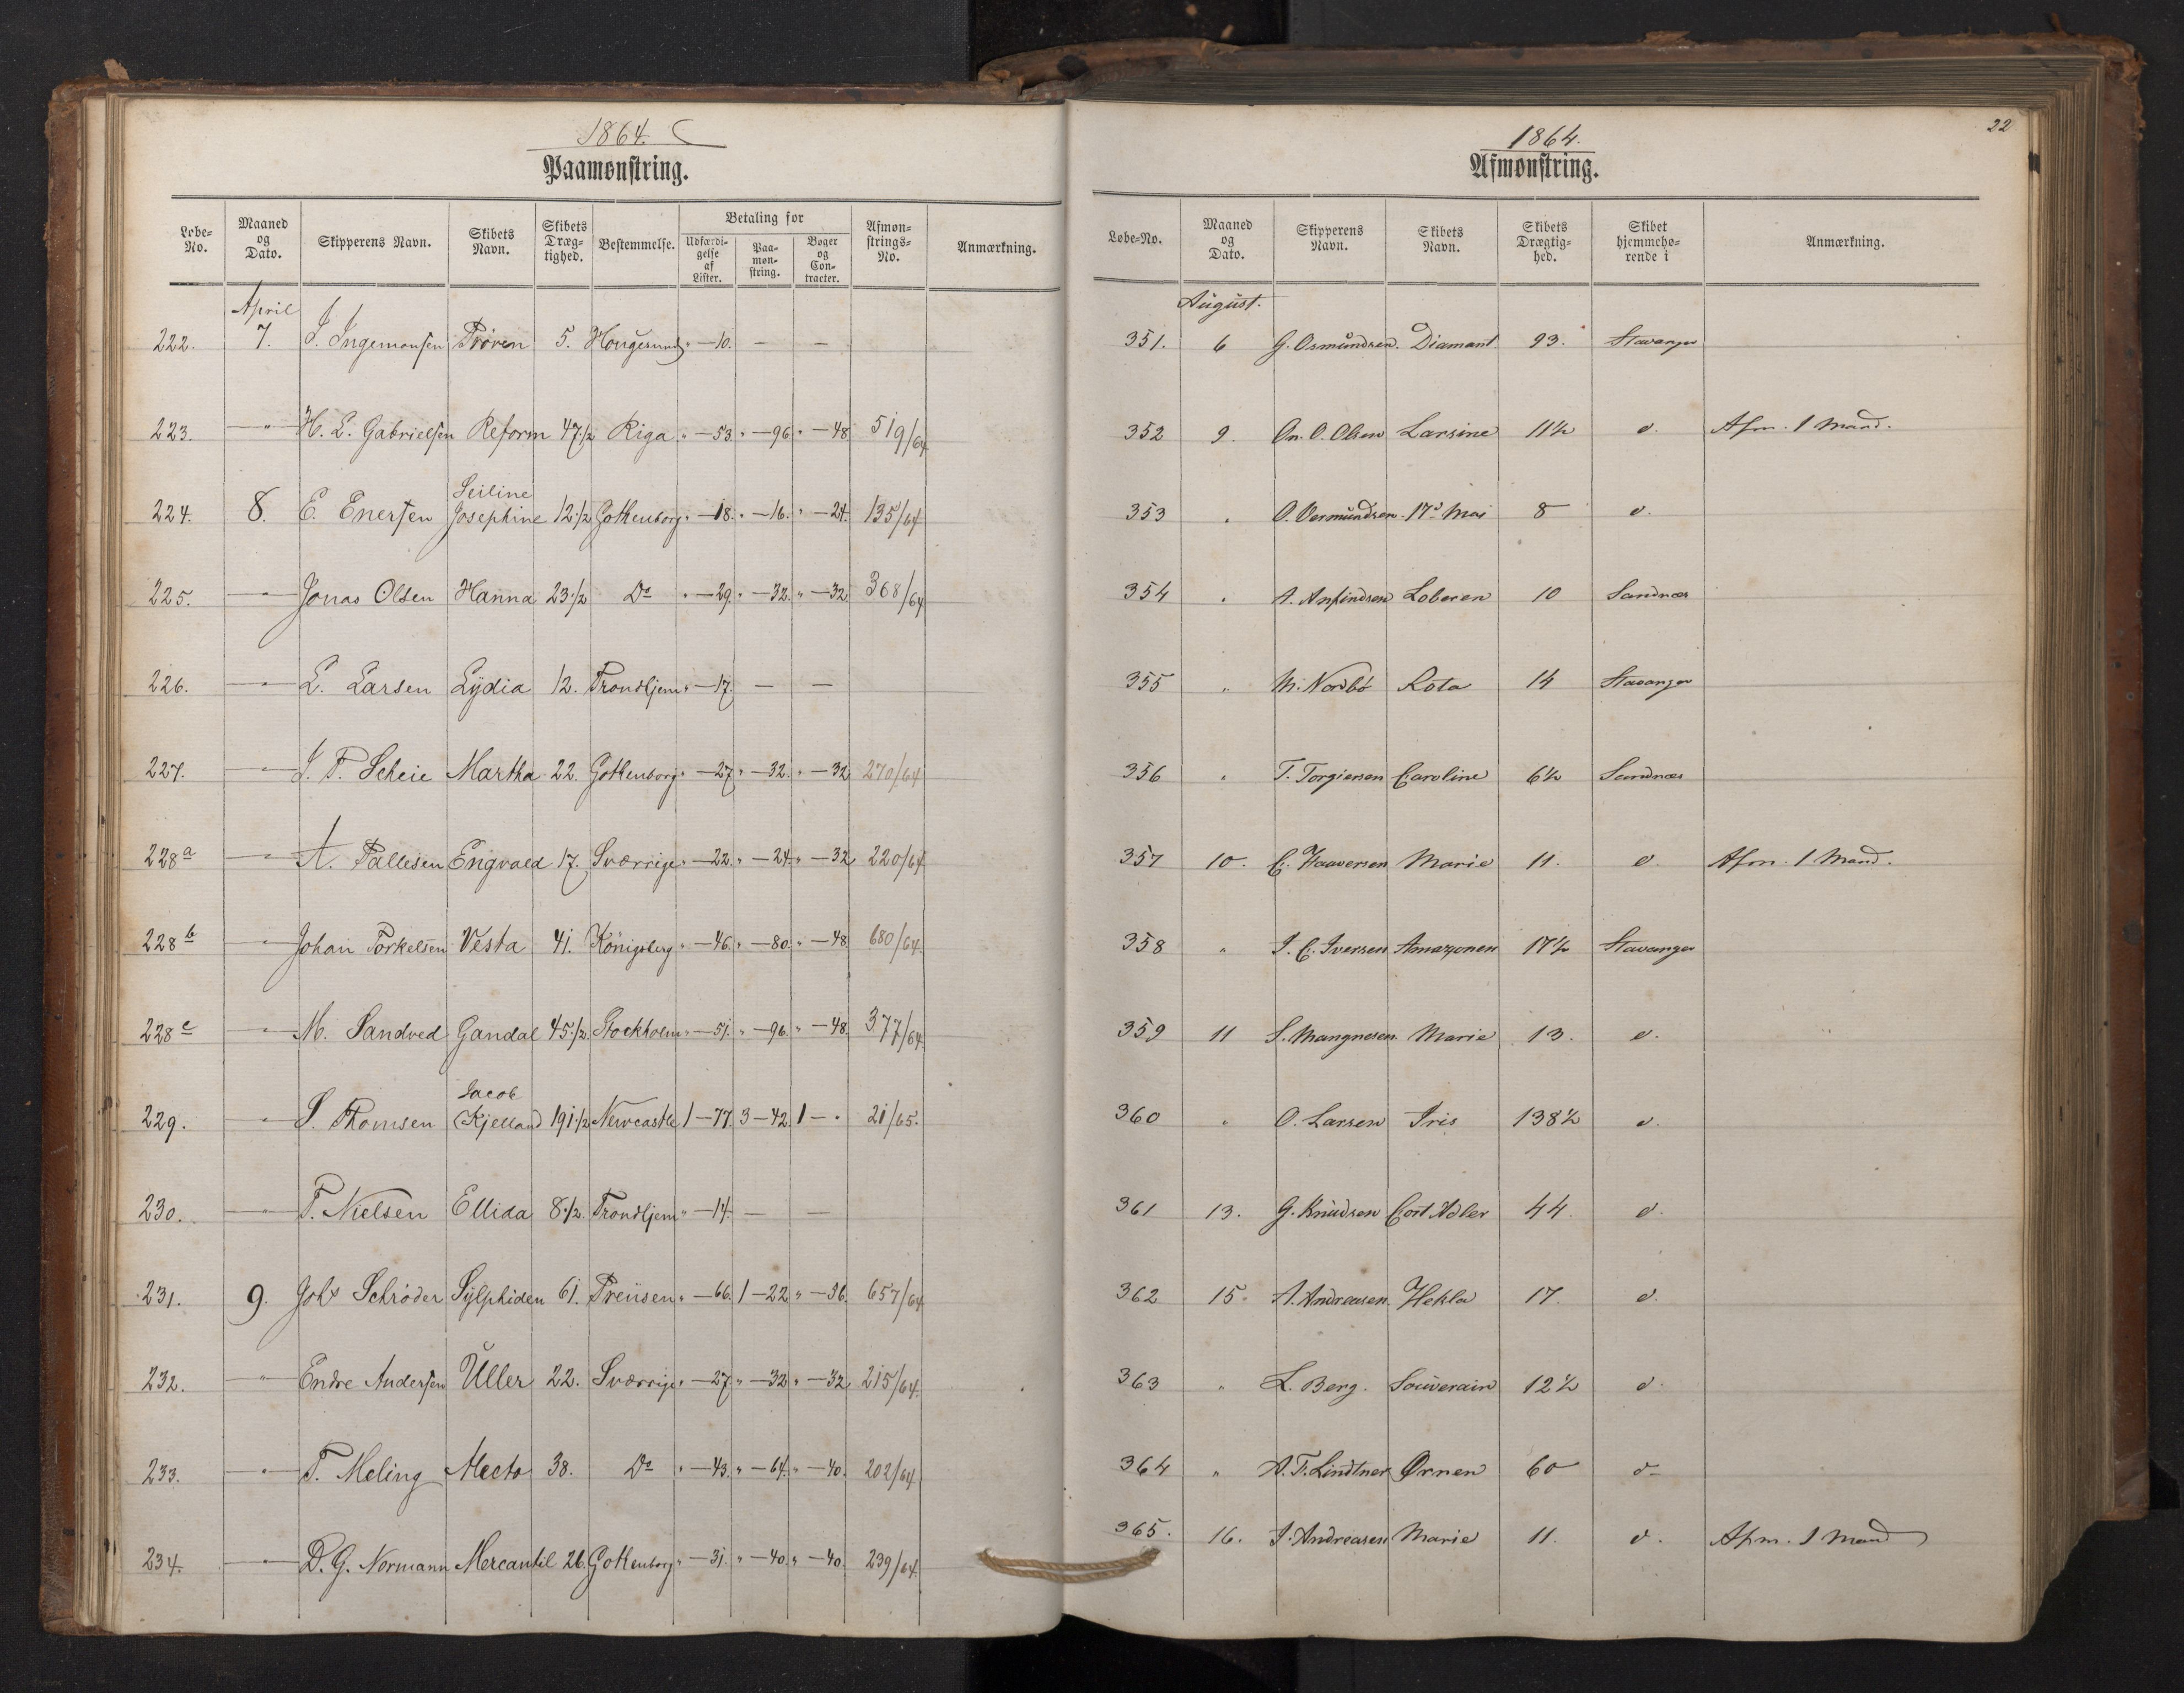 1864.
Paamønstring.
Løbe-No. | Maaned og Dato. | Skipperens Navn. | Skibets Navn. | Skibets Dræg-tighed. | Bestemmelse. | Betaling for Udfærdi-gelse af Lister. | Paa-møn-string. | Bøger og Con-tracter. | Afmøn-strings-No. | Anmærkning.
April
222. 7. J. Ingemonsen Prøven 5. Hougesund " — 10. — —
223. — " — H. L. Gabrielsen Reform 47 1/2 Riga " — 53. " — 96. " — 48. 519/64
Seiline
224. 8. E. Enersen Josephine 12 1/2 Gothenborg " — 18. " — 16. " — 24. 135/64
225. — " — Jonas Olsen Hanna 23 1/2 Do " — 29. " — 32. " — 32. 368/64
226. — " — L. Larsen Lydia 12. Trondhjem " — 17. — —
227. — " — J. T. Scheie Martha 22. Gothenborg " — 27. " — 32. " — 32. 270/64
228a — " — A. Pallesen Engvald 17. Sværrige " — 22. " — 24. " — 32. 220/64
228b — " — Johan Torkelsen Vesta 41. Königsberg " — 46. " — 80. " — 48. 680/64
228c — " — M. Sandved Gandal 45 1/2 Stockholm " — 51. " — 96. " — 48. 377/64
Jacob
229. — " — S. Thomsen Kjelland 191 1/2 Newcastle 1 — 77. 3 — 42. 1 — " 21/65.
230. — " — T. Nielsen Ellida 8 1/2. Trondhjem " — 14. — —
231. 9. Johs Schrøder Sylphiden 61. Preusen " — 66. 1 — 22. " — 56. 657/64
232. — " — Endre Andersen Uller 22. Sværrige " — 27. " — 32. " — 32. 215/64.
233. — " — T. Meling Alecto 38. Do " — 43. " — 64. " — 40. 202/64
234. — " — D. G. Normann Mercantil 26. Gothenborg " — 31. " — 40. " — 40. 239/64
22
1864.
Afmønstring.
Løbe-No. | Maaned og Dato. | Skipperens Navn. | Skibets Navn. | Skibets Drægtig-hed. | Skibet hjemmehø-rende i | Anmærkning.
August.
351. 6 G. Osmundsen. Diamant 93. Stavanger
352 9. On. O. Olsen Larsine 11 1/2 do. Afm. 1 Mand.
353 " O. Vermundsen 17d Mai 8 do.
354 " A. Anfindsen Loberen 10 Sandnæs
355 " M. Nordbø Rota 14 Stavanger
356 " T. Torgiersen Caroline 6 1/2 Sandnæs
357 10. C. Haaversen Marie 11. do. Afm. 1 Mand.
358 " J. C. Iversen Amazonen 17 1/2 Stavanger
359 11 S. Mangnesen Marie 13. do.
360 " O. Larsen Iris 138 1/2 do.
361 13. G. Knudsen Cort Adler 44. do.
362 15. A. Andreasen Hekla 17. do.
363 " L. Berg. Souverain 12 1/2 do.
364 " A. F. Lindtner Ørnen 60 do
365. 16. J. Andreasen Marie 11. do. Afm. 1 Mand